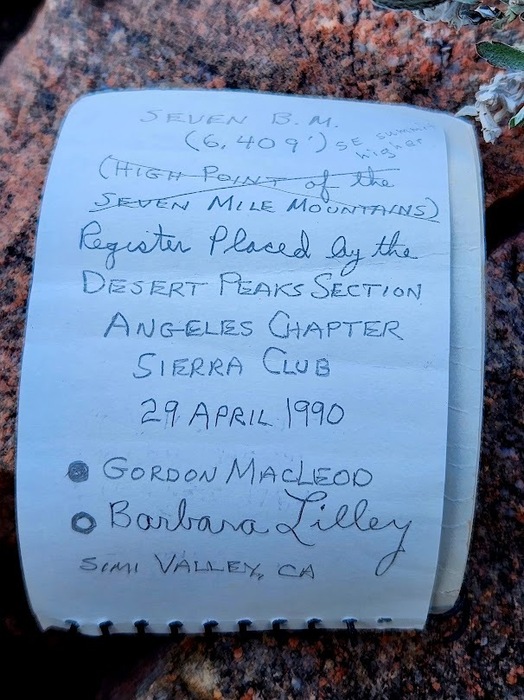 SEVEN B.M.
(6,409') SE summit higher
(HIGH POINT of the
SEVEN MILE MOUNTAINS)
Register Placed by the
DESERT PEAKS SECTION
ANGELES CHAPTER
SIERRA CLUB
29 APRIL 1990
GORDON MACLEOD
Barbara Lilley
SIMI VALLEY, CA